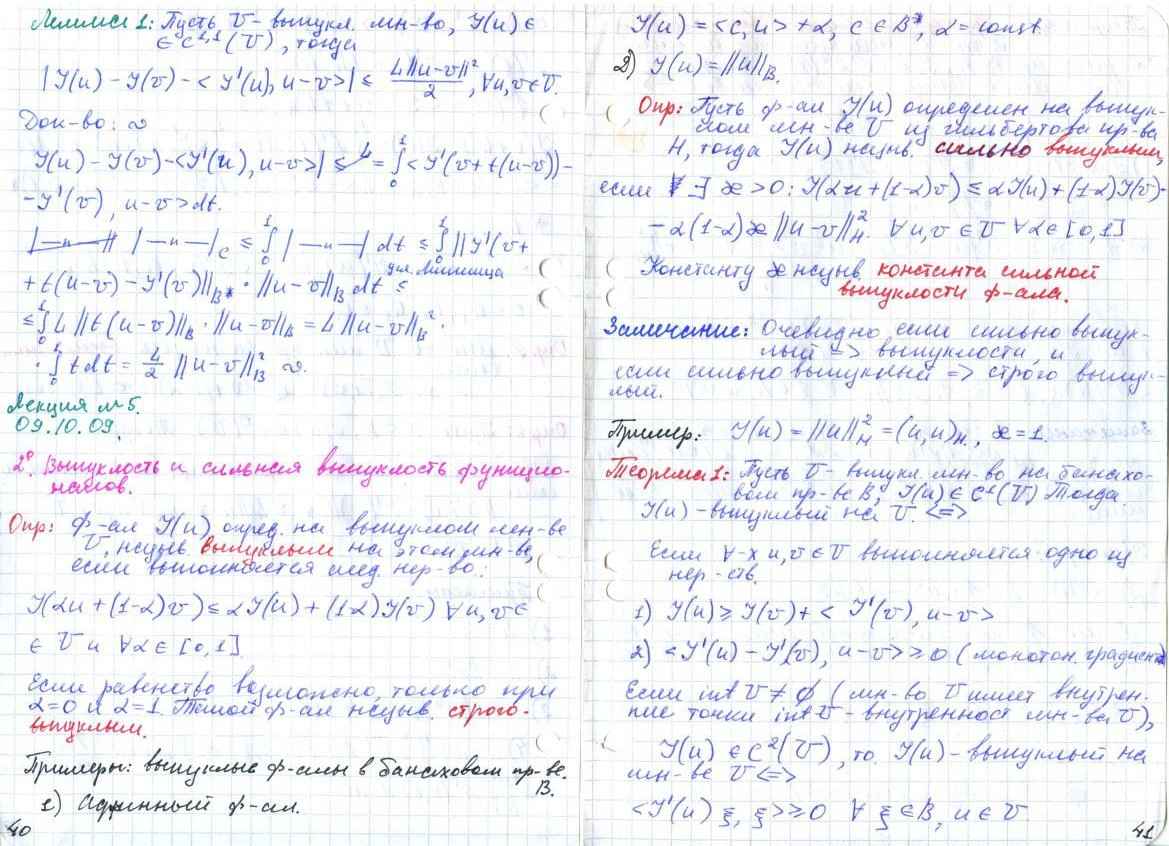 Лемма 1: Пусть U - выпукл. мн-во, J(u) ∈
∈ C^{1,1}(U), тогда
|J(u) - J(v) - <J'(u), u-v>| ≤ L‖u-v‖²/2, ∀u,v∈U.
Док-во: ∾
J(u) - J(v) - <J'(u), u-v>| ≤ = ∫₀¹ <J'(v+t(u-v)) -
- J'(v), u-v> dt.
|—"—| |—"—|_C ≤ ∫₀¹ |—"—| dt ≤ ∫₀¹ ‖J'(v+
+t(u-v) - J'(v)‖_{B*} · ‖u-v‖_B dt ≤ усл. Липшица
≤ ∫₀¹ L ‖t(u-v)‖_B · ‖u-v‖_B = L ‖u-v‖_B² ·
· ∫₀¹ t dt = L/2 ‖u-v‖_B² ∾.
Лекция №5.
09.10.09.
2°. Выпуклость и сильная выпуклость функцио-
налов.
Опр: Ф-ал J(u), опред. на выпуклом мн-ве
U, назыв. выпуклым на этом мн-ве,
если выполняется след. нер-во:
J(αu + (1-α)v) ≤ αJ(u) + (1-α)J(v) ∀u,v ∈
∈ U и ∀α ∈ [0,1]
Если равенство возможно, только при
α=0 и α=1. Такой ф-ал назыв. строго-
выпуклым.
Примеры: выпуклые ф-алы в банаховом пр-ве.
B.
1) Аффинный ф-ал.
40
J(u) = <c,u> + α, c ∈ B*, α = const
2) J(u) = ‖u‖_B.
Опр: Пусть ф-ал J(u) определен на выпук-
лом мн-ве U из гильбертова пр-ва
H, тогда J(u) назыв. сильно выпуклым,
если ∃ æ > 0: J(αu + (1-α)v) ≤ αJ(u) + (1-α)J(v) -
- α(1-α) æ ‖u-v‖²_H. ∀u,v ∈ U ∀α ∈ [0,1]
Константу æ назыв. константа сильной
выпуклости ф-ала.
Замечание: Очевидно, если сильно выпук-
лый => выпуклости, и
если сильно выпуклый => строго выпук-
лый.
Пример: J(u) = ‖u‖²_H = (u,u)_H, æ = 1.
Теорема 1: Пусть U - выпукл. мн-во на банахо-
вом пр-ве B, J(u) ∈ C¹(U) Тогда
J(u) - выпуклый на U. <=>
Если ∀-х u,v ∈ U выполняется одно из
нер-ств.
1) J(u) ≥ J(v) + < J'(v), u-v>
2) <J'(u) - J'(v), u-v> ≥ 0 (монотон. градиент)
Если int U ≠ ∅ (мн-во U имеет внутрен-
ние точки int U - внутренность мн-ва U),
J(u) ∈ C²(U), то J(u) - выпуклый на
мн-ве U <=>
<J'(u) ξ, ξ> ≥ 0 ∀ ξ ∈ B, u ∈ U.
41